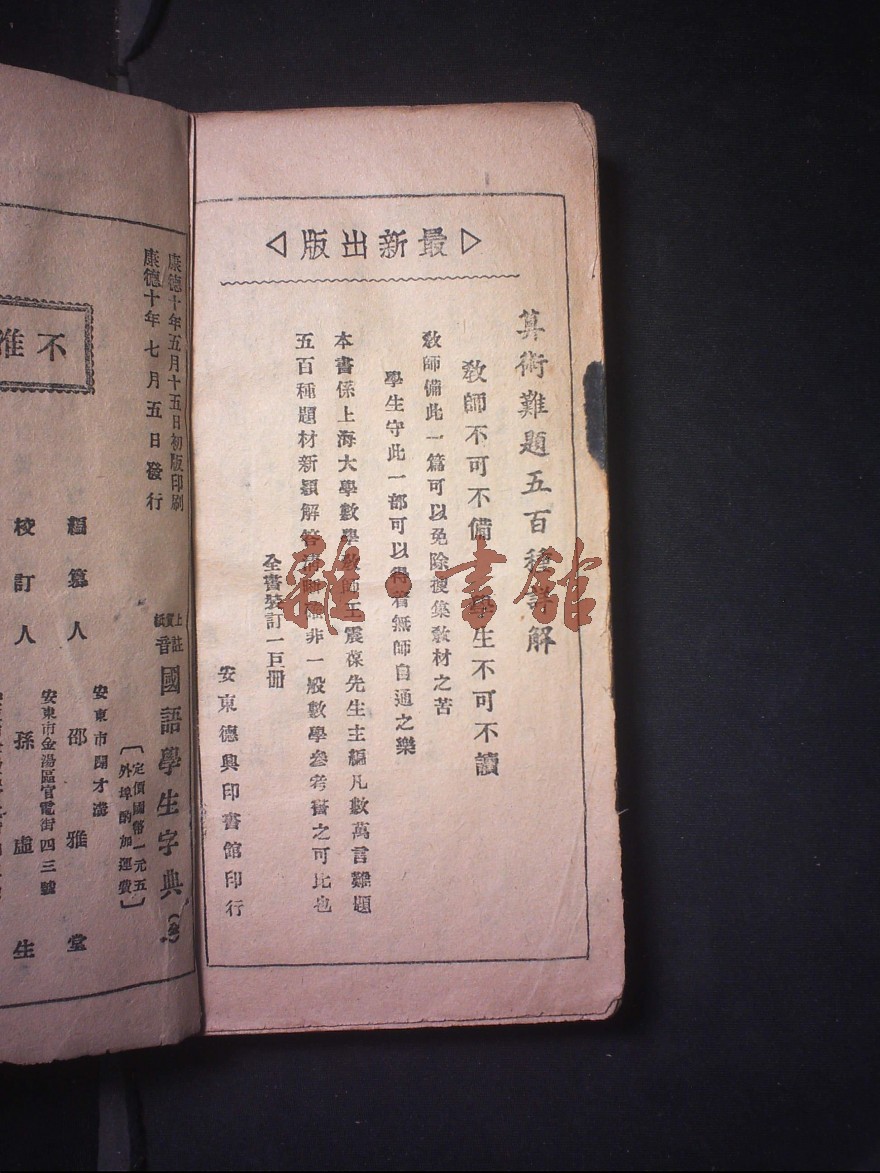 最新出版
算術難題五百種詳解
教師不可不備 學生不可不讀
教師備此一篇可以免除搜集教材之苦
學生守此一部可以得着無師自通之樂
本書係上海大學數學教師王震葆先生主編凡數萬言難題
五百種題材新穎解答清晰非一般數學參考書之可比也
全書裝訂一巨冊
安東德興印書館印行
雜·書館
不准
康德十年五月十五日初版印刷
康德十年七月五日發行
國語學生字典
定價國幣一元五
外埠酌加運費
安東市
編纂人 邵雅堂
安東市金湯區官電街四三號
校訂人 孫虛生